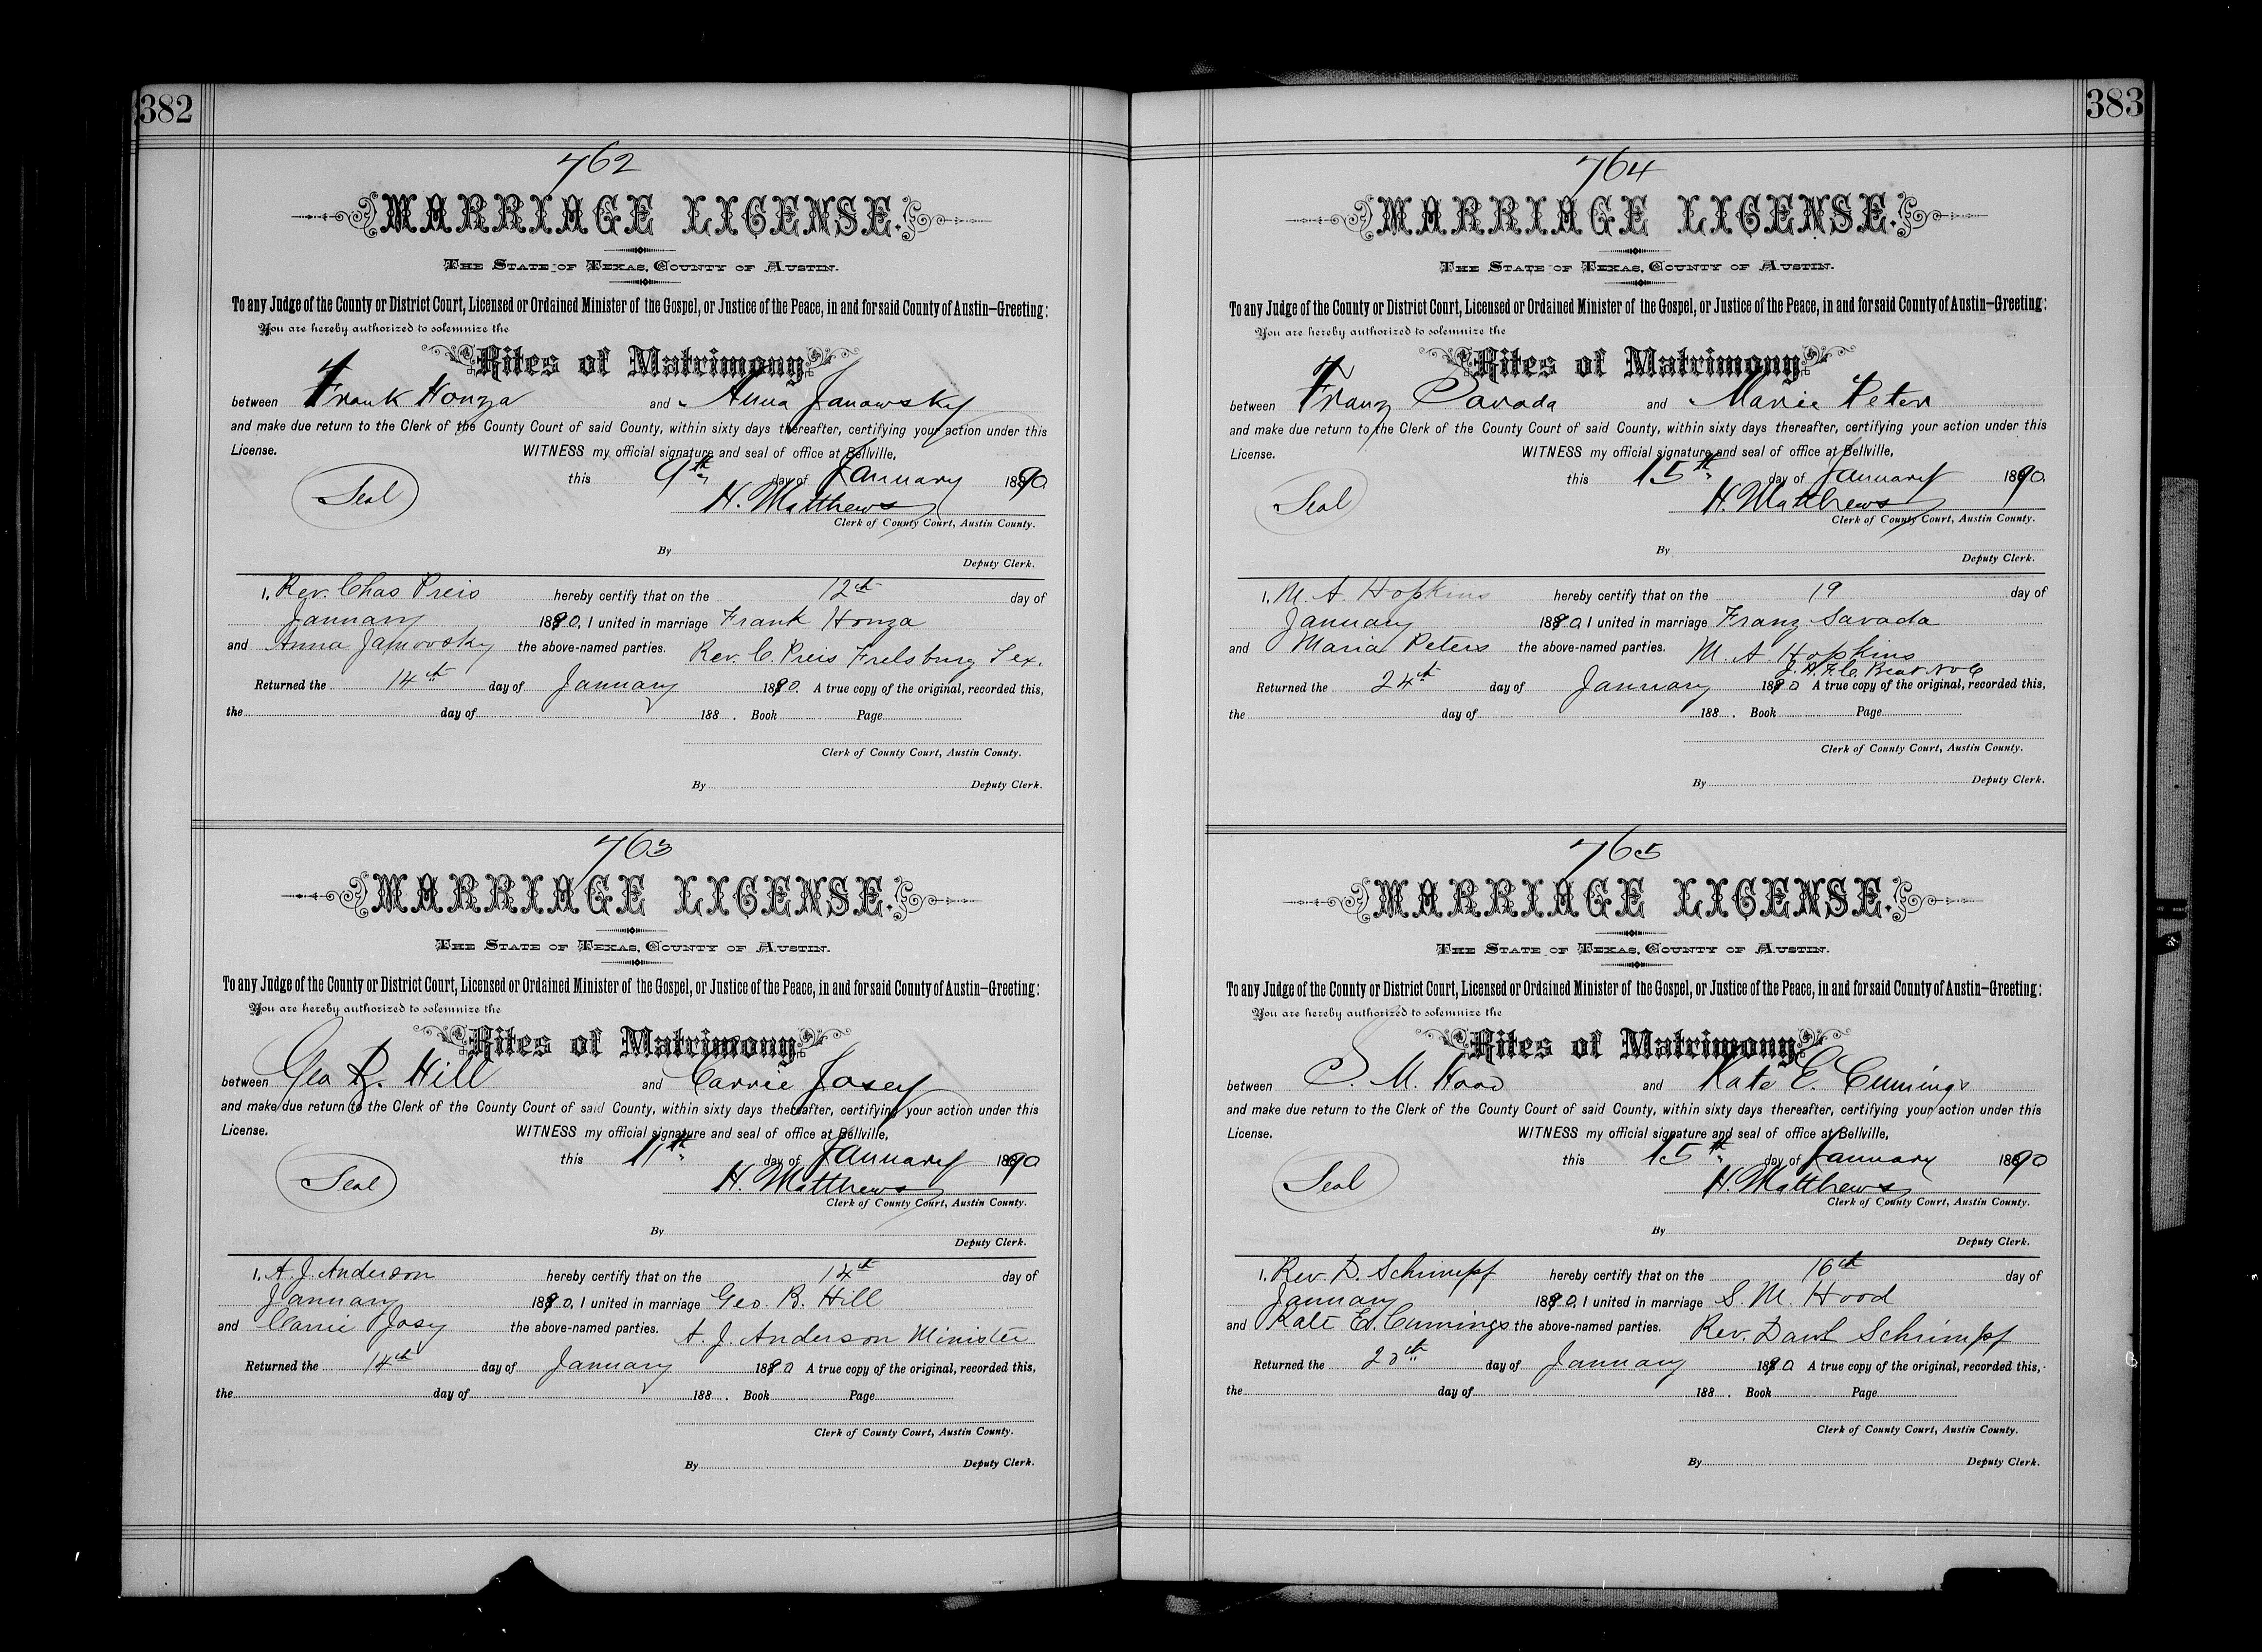 382
762
MARRIAGE LICENSE.
THE STATE OF TEXAS, COUNTY OF AUSTIN.
To any Judge of the County or District Court, Licensed or Ordained Minister of the Gospel, or Justice of the Peace, in and for said County of Austin—Greeting:
You are hereby authorized to solemnize the
Rites of Matrimony
between Frank Honza and Anna Janowsky
and make due return to the Clerk of the County Court of said County, within sixty days thereafter, certifying your action under this
License. WITNESS my official signature and seal of office at Bellville,
Seal this 9th day of January 1890.
H. Matthews
Clerk of County Court, Austin County.
By
Deputy Clerk.
I, Rev. Chas Preis hereby certify that on the 12th day of
January 1890, I united in marriage Frank Honza
and Anna Janovsky the above-named parties. Rev. C. Preis Frelsburg Tex.
Returned the 14th day of January 1890. A true copy of the original, recorded this,
the day of 188 . Book Page
Clerk of County Court, Austin County.
By Deputy Clerk.
763
MARRIAGE LICENSE.
THE STATE OF TEXAS, COUNTY OF AUSTIN.
To any Judge of the County or District Court, Licensed or Ordained Minister of the Gospel, or Justice of the Peace, in and for said County of Austin—Greeting:
You are hereby authorized to solemnize the
Rites of Matrimony
between Geo B. Hill and Carrie Josey
and make due return to the Clerk of the County Court of said County, within sixty days thereafter, certifying your action under this
License. WITNESS my official signature and seal of office at Bellville,
Seal this 11th day of January 1890
H. Matthews
Clerk of County Court, Austin County.
By
Deputy Clerk.
I, A. J. Anderson hereby certify that on the 14th day of
January 1890, I united in marriage Geo. B. Hill
and Carrie Josy the above-named parties. A. J. Anderson Minister
Returned the 14th day of January 1890 A true copy of the original, recorded this,
the day of 188 . Book Page
Clerk of County Court, Austin County.
By Deputy Clerk.
383
764
MARRIAGE LICENSE.
THE STATE OF TEXAS, COUNTY OF AUSTIN.
To any Judge of the County or District Court, Licensed or Ordained Minister of the Gospel, or Justice of the Peace, in and for said County of Austin—Greeting:
You are hereby authorized to solemnize the
Rites of Matrimony
between Franz Savada and Marie Peter
and make due return to the Clerk of the County Court of said County, within sixty days thereafter, certifying your action under this
License. WITNESS my official signature and seal of office at Bellville,
Seal this 15th day of January 1890.
H. Matthews
Clerk of County Court, Austin County.
By
Deputy Clerk.
I, M. A. Hopkins hereby certify that on the 19 day of
January 1890, I united in marriage Franz Savada
and Maria Peters the above-named parties. M. A Hopkins
Beat No 6
Returned the 24th day of January 1890 A true copy of the original, recorded this,
the day of 188 . Book Page
Clerk of County Court, Austin County.
By Deputy Clerk.
765
MARRIAGE LICENSE.
THE STATE OF TEXAS, COUNTY OF AUSTIN.
To any Judge of the County or District Court, Licensed or Ordained Minister of the Gospel, or Justice of the Peace, in and for said County of Austin—Greeting:
You are hereby authorized to solemnize the
Rites of Matrimony
between S. M. Hood and Kate E. Cumings
and make due return to the Clerk of the County Court of said County, within sixty days thereafter, certifying your action under this
License. WITNESS my official signature and seal of office at Bellville,
Seal this 15th day of January 1890
H. Matthews
Clerk of County Court, Austin County.
By
Deputy Clerk.
I, Rev. D. Schrimpf hereby certify that on the 16th day of
January 1890, I united in marriage S. M. Hood
and Kate E. Cumings the above-named parties. Rev. Danl Schrimpf
Returned the day of January 1890 A true copy of the original, recorded this,
the day of 188 . Book Page
Clerk of County Court, Austin County.
By Deputy Clerk.